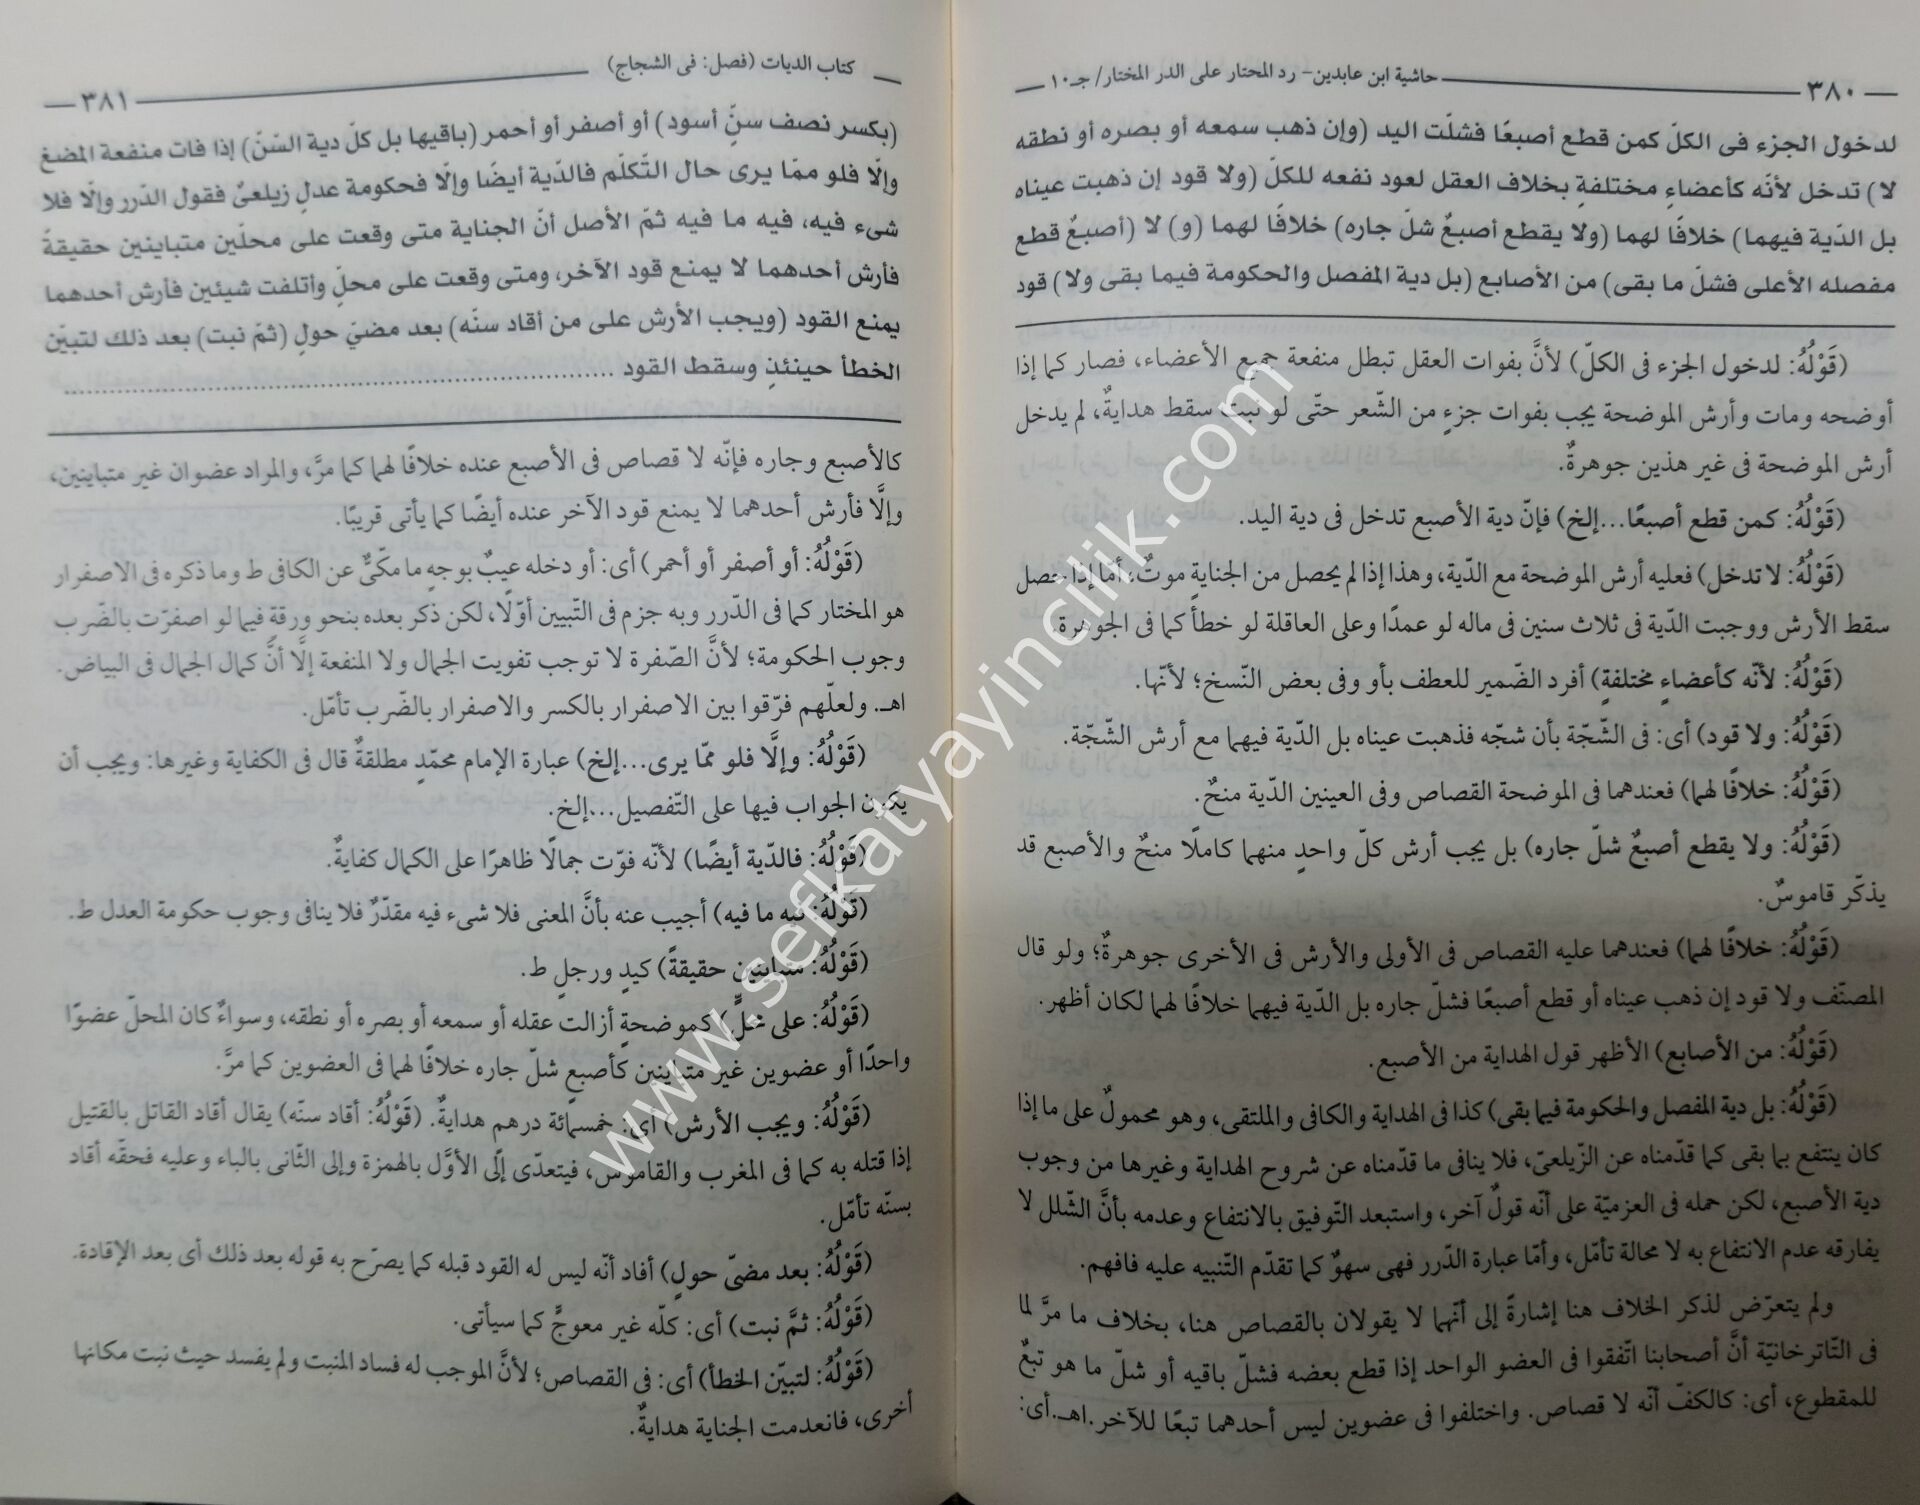 حاشية ابن عابدين- رد المحتار على الدر المختار/ جـ١٠
٣٨٠
لدخول الجزء فى الكلّ كمن قطع أصبعًا فشلّت اليد (وإن ذهب سمعه أو بصره أو نطقه
لا) تدخل لأنّه كأعضاءٍ مختلفةٍ بخلاف العقل لعود نفعه للكلّ (ولا قود إن ذهبت عيناه
بل الدّية فيهما) خلافًا لهما (ولا يقطع أصبعٌ شلّ جاره) خلافًا لهما (و) لا (أصبعٌ قطع
مفصله الأعلى فشلّ ما بقى) من الأصابع (بل دية المفصل والحكومة فيما بقى ولا) قود
(قَوْلُهُ: لدخول الجزء فى الكلّ) لأنَّ بفوات العقل تبطل منفعة جميع الأعضاء، فصار كما إذا
أوضحه ومات وأرش الموضحة يجب بفوات جزءٍ من الشّعر حتّى لو نبت سقط هدايةٌ، لم يدخل
أرش الموضحة فى غير هذين جوهرةٌ.
(قَوْلُهُ: كمن قطع أصبعًا...إلخ) فإنّ دية الأصبع تدخل فى دية اليد.
(قَوْلُهُ: لا تدخل) فعليه أرش الموضحة مع الدّية، وهذا إذا لم يحصل من الجناية موتٌ، أمّا إذا حصل
سقط الأرش ووجبت الدّية فى ثلاث سنين فى ماله لو عمدًا وعلى العاقلة لو خطأً كما فى الجوهرة.
(قَوْلُهُ: لأنّه كأعضاءٍ مختلفةٍ) أفرد الضّمير للعطف بأو وفى بعض النّسخ؛ لأنّها.
(قَوْلُهُ: ولا قود) أى: فى الشّجّة بأن شجّه فذهبت عيناه بل الدّية فيهما مع أرش الشّجّة.
(قَوْلُهُ: خلافًا لهما) فعندهما فى الموضحة القصاص وفى العينين الدّية منحٌ.
(قَوْلُهُ: ولا يقطع أصبعٌ شلّ جاره) بل يجب أرش كلّ واحدٍ منهما كاملًا منحٌ والأصبع قد
يذكّر قاموسٌ.
(قَوْلُهُ: خلافًا لهما) فعندهما عليه القصاص فى الأولى والأرش فى الأخرى جوهرةٌ؛ ولو قال
المصنّف ولا قود إن ذهب عيناه أو قطع أصبعًا فشلّ جاره بل الدّية فيهما خلافًا لهما لكان أظهر.
(قَوْلُهُ: من الأصابع) الأظهر قول الهداية من الأصبع.
(قَوْلُهُ: بل دية المفصل والحكومة فيما بقى) كذا فى الهداية والكافى والملتقى، وهو محمولٌ على ما إذا
كان ينتفع بما بقى كما قدّمناه عن الزّيلعىّ، فلا ينافى ما قدّمناه عن شروح الهداية وغيرها من وجوب
دية الأصبع، لكن حمله فى العزميّة على أنّه قولٌ آخر، واستبعد التّوفيق بالانتفاع وعدمه بأنَّ الشّلل لا
يفارقه عدم الانتفاع به لا محالة تأمّل، وأمّا عبارة الدّرر فهى سهوٌ كما تقدّم التّنبيه عليه فافهم.
ولم يتعرّض لذكر الخلاف هنا إشارةً إلى أنّهما لا يقولان بالقصاص هنا، بخلاف ما مرَّ لما
فى التّاترخانيّة أنَّ أصحابنا اتّفقوا فى العضو الواحد إذا قطع بعضه فشلّ باقيه أو شلّ ما هو تبعٌ
للمقطوع، أى: كالكفّ أنّه لا قصاص. واختلفوا فى عضوين ليس أحدهما تبعًا للآخر.اهـ.أى:
كتاب الديات (فصل: فى الشجاج)
٣٨١
(بكسر نصف سنٍّ أسود) أو أصفر أو أحمر (باقيها بل كلّ دية السّنّ) إذا فات منفعة المضغ
وإلّا فلو ممّا يرى حال التّكلّم فالدّية أيضًا وإلّا فحكومة عدلٍ زيلعىٌّ فقول الدّرر وإلّا فلا
شىء فيه، فيه ما فيه ثمّ الأصل أنّ الجناية متى وقعت على محلّين متباينين حقيقةً
فأرش أحدهما لا يمنع قود الآخر، ومتى وقعت على محلٍّ وأتلفت شيئين فأرش أحدهما
يمنع القود (ويجب الأرش على من أقاد سنّه) بعد مضىّ حولٍ (ثمّ نبت) بعد ذلك لتبيّن
الخطأ حينئذٍ وسقط القود
كالأصبع وجاره فإنّه لا قصاص فى الأصبع عنده خلافًا لهما كما مرَّ، والمراد عضوان غير متباينين،
وإلَّا فأرش أحدهما لا يمنع قود الآخر عنده أيضًا كما يأتى قريبًا.
(قَوْلُهُ: أو أصفر أو أحمر) أى: أو دخله عيبٌ بوجهٍ ما مكّىٌّ عن الكافى ط وما ذكره فى الاصفرار
هو المختار كما فى الدّرر وبه جزم فى التّبيين أوّلًا، لكن ذكر بعده بنحو ورقةٍ فيما لو اصفرّت بالضّرب
وجوب الحكومة؛ لأنَّ الصّفرة لا توجب تفويت الجمال ولا المنفعة إلَّا أنَّ كمال الجمال فى البياض.
اهـ. ولعلّهم فرّقوا بين الاصفرار بالكسر والاصفرار بالضّرب تأمّل.
(قَوْلُهُ: وإلَّا فلو ممّا يرى...إلخ) عبارة الإمام محمّدٍ مطلقةٌ قال فى الكفاية وغيرها: ويجب أن
يكون الجواب فيها على التّفصيل...إلخ.
(قَوْلُهُ: فالدّية أيضًا) لأنّه فوّت جمالًا ظاهرًا على الكمال كفايةٌ.
(قَوْلُهُ: فيه ما فيه) أجيب عنه بأنَّ المعنى فلا شىء فيه مقدّرٌ فلا ينافى وجوب حكومة العدل ط.
(قَوْلُهُ: متباينين حقيقةً) كيدٍ ورجلٍ ط.
(قَوْلُهُ: على محلٍّ) كموضحةٍ أزالت عقله أو سمعه أو بصره أو نطقه، وسواءٌ كان المحلّ عضوًا
واحدًا أو عضوين غير متباينين كأصبعٍ شلّ جاره خلافًا لهما فى العضوين كما مرَّ.
(قَوْلُهُ: ويجب الأرش) أى: خمسمائة درهم هدايةٌ. (قَوْلُهُ: أقاد سنّه) يقال أقاد القاتل بالقتيل
إذا قتله به كما فى المغرب والقاموس، فيتعدّى إلى الأوَّل بالهمزة وإلى الثّانى بالباء وعليه فحقّه أقاد
بسنّه تأمّل.
(قَوْلُهُ: بعد مضىّ حولٍ) أفاد أنّه ليس له القود قبله كما يصرّح به قوله بعد ذلك أى بعد الإقادة.
(قَوْلُهُ: ثمَّ نبت) أى: كلّه غير معوجٍّ كما سيأتى.
(قَوْلُهُ: لتبيّن الخطأ) أى: فى القصاص؛ لأنَّ الموجب له فساد المنبت ولم يفسد حيث نبت مكانها
أخرى، فانعدمت الجناية هدايةٌ.
www.sefkatyayincilik.com